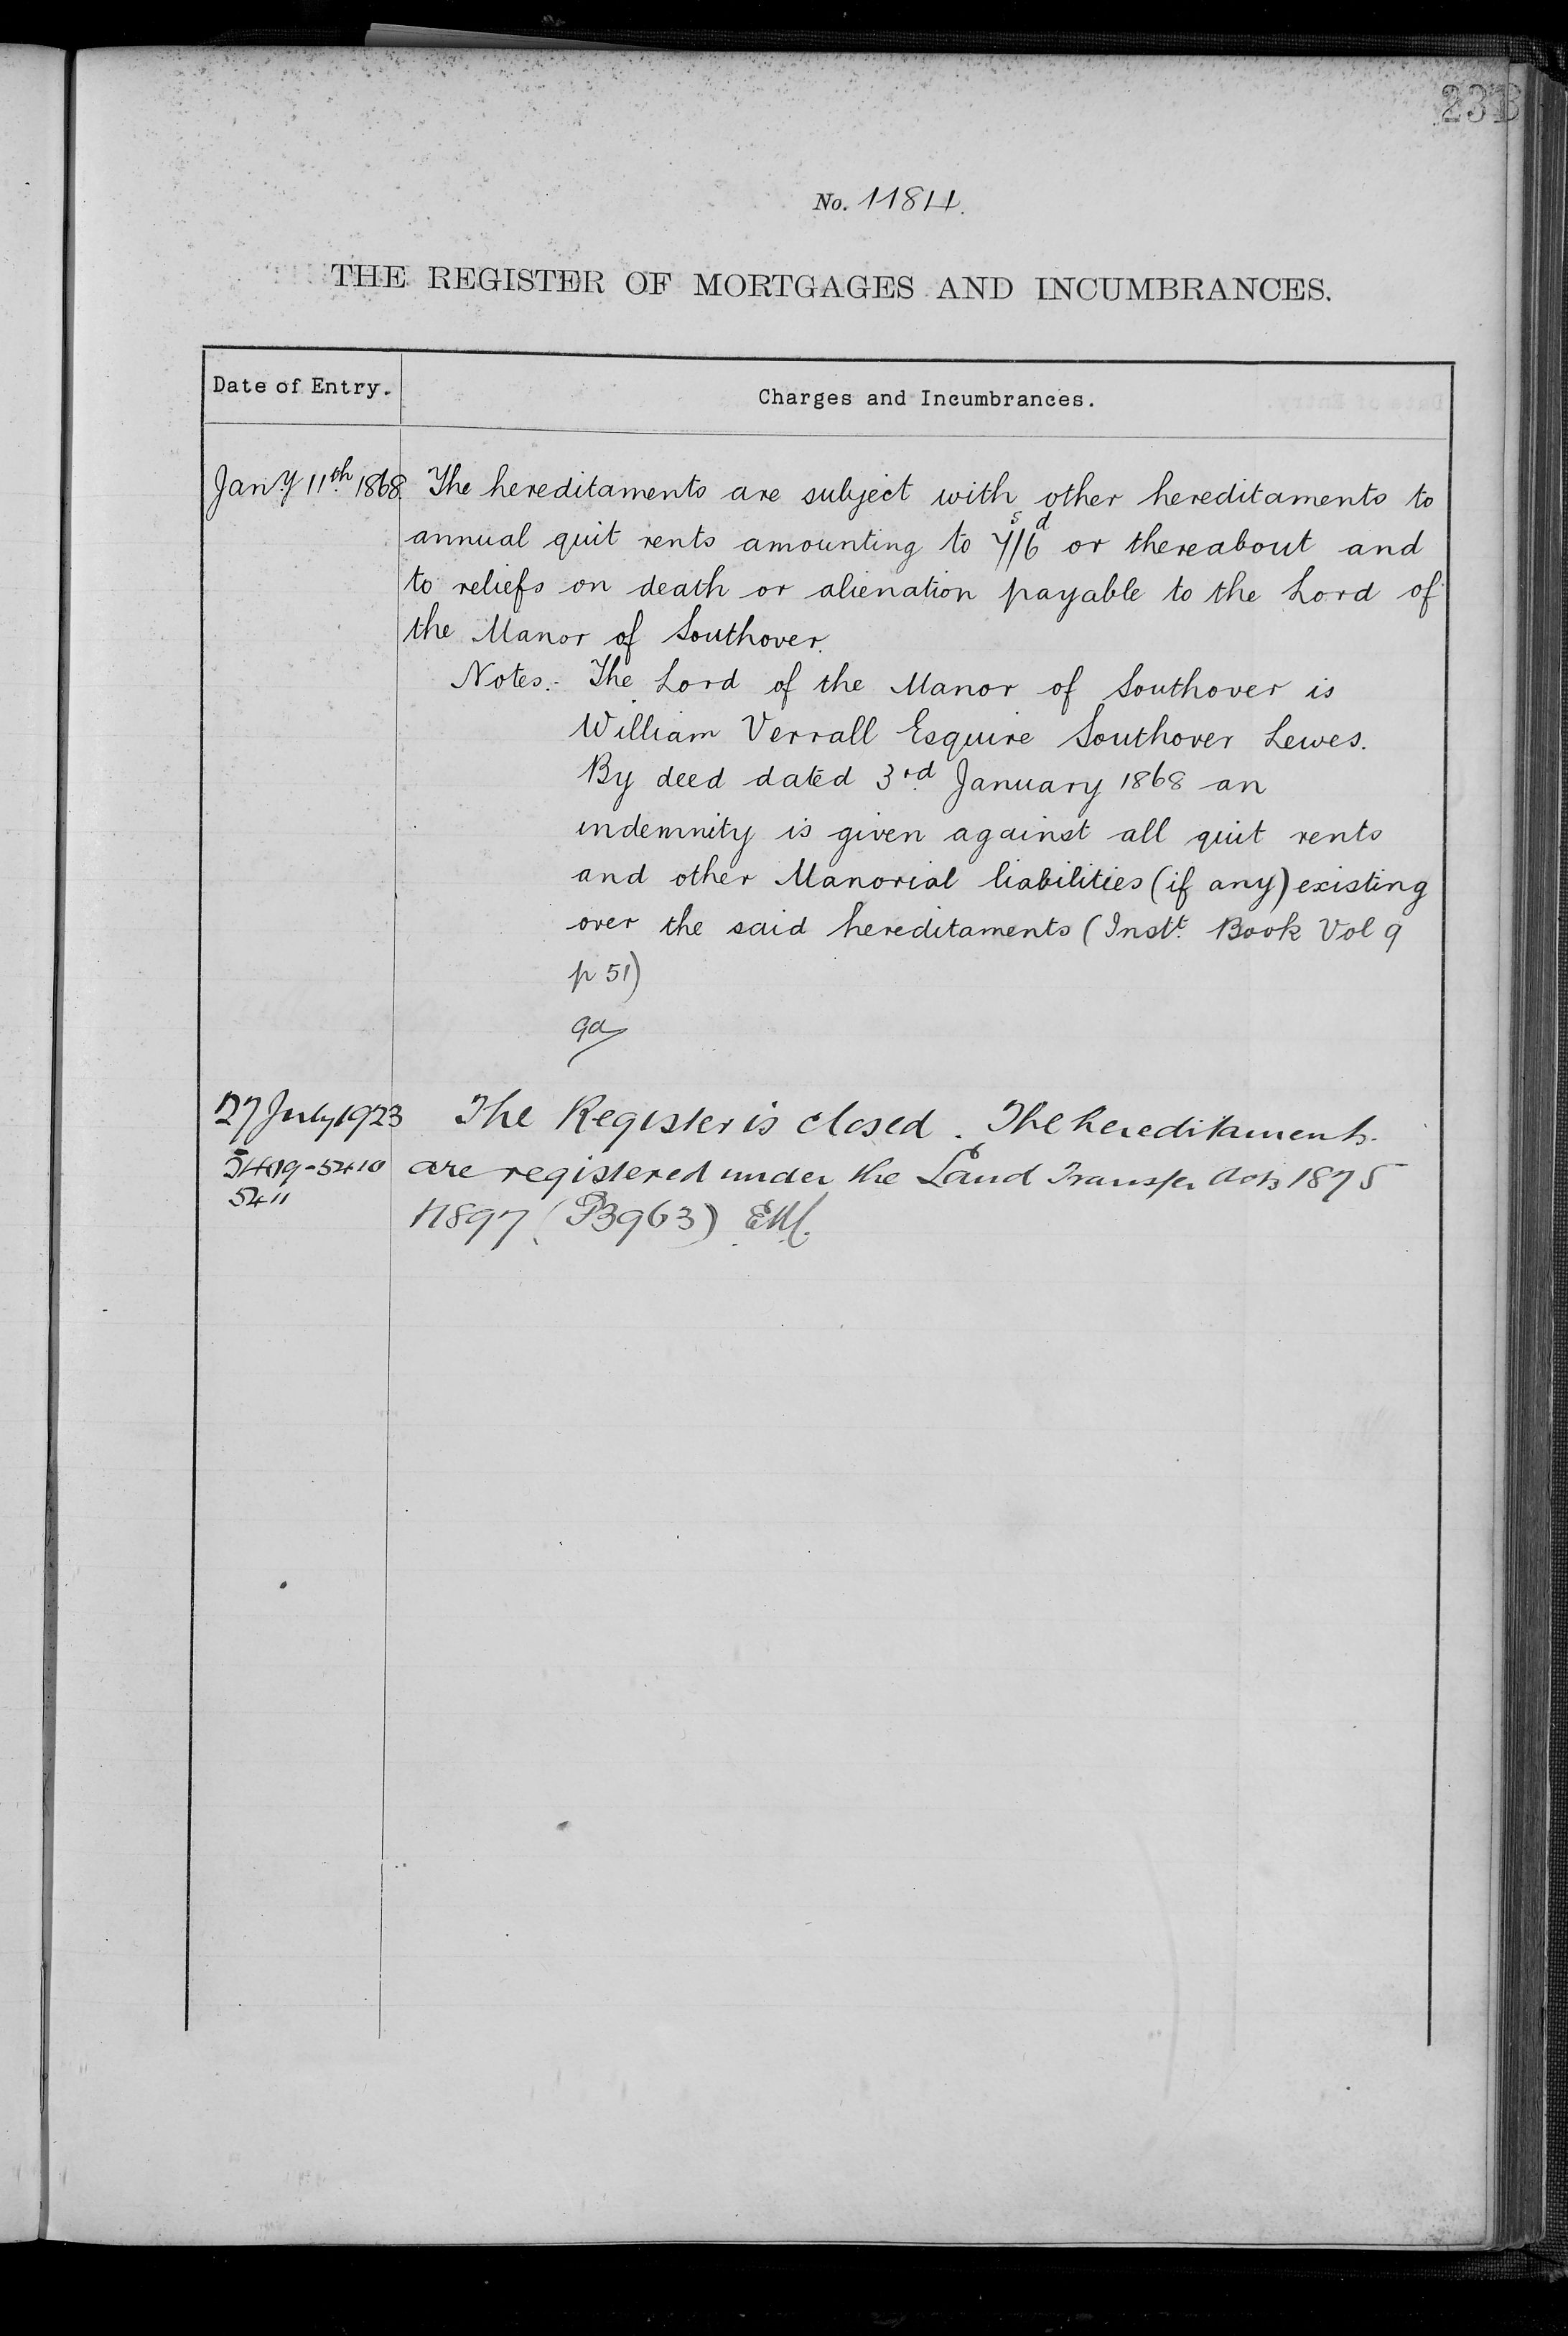 231B
No. 1184.
THE REGISTER OF MORTGAGES AND INCUMBRANCES.
Date of Entry.
Charges and Incumbrances.
Jany 11th 1868. The hereditaments are subject with other hereditaments to
annual quit rents amounting to 7s/6d or thereabout and
to reliefs on death or alienation payable to the Lord of
the Manor of Southover.
Notes:- The Lord of the Manor of Southover is
William Verrall Esquire Southover Lewes.
By deed dated 3rd January 1868 an
indemnity is given against all quit rents
and other Manorial liabilities (if any) existing
over the said hereditaments (Instt. Book Vol 9
p 51)
27 July 1923 The Register is closed. The hereditaments
-5410 are registered under the Land Transfer Acts 1875
5411
1897 (P3963)